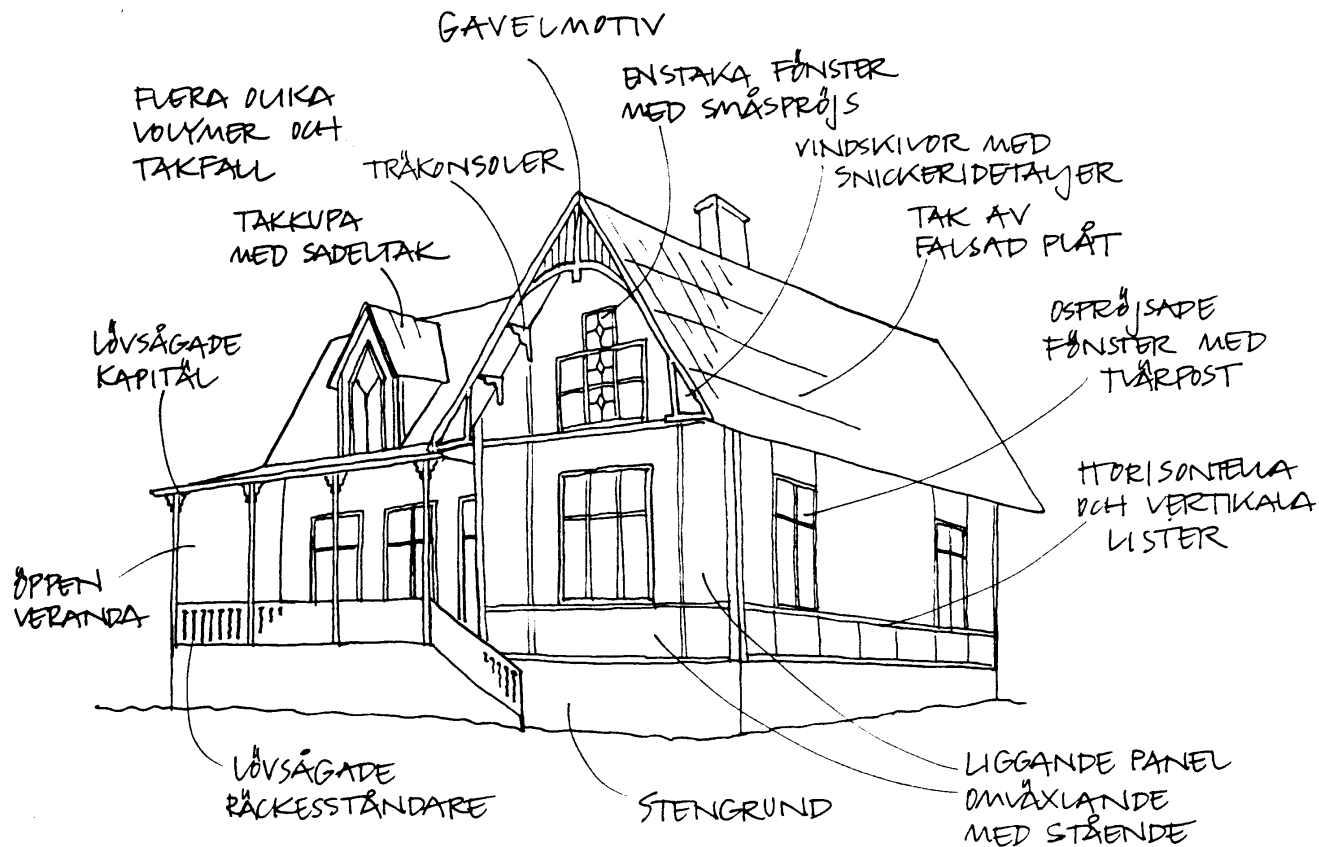 GAVELMOTIV
ENSTAKA FÖNSTER
MED SMÅSPRÖJS
FLERA OLIKA
VOLYMER OCH
TAKFALL
TRÄKONSOLER
VINDSKIVOR MED
SNICKERIDETALJER
TAKKUPA
MED SADELTAK
TAK AV
FALSAD PLÅT
LÖVSÅGADE
KAPITÄL
OSPRÖJSADE
FÖNSTER MED
TVÄRPOST
HORISONTELLA
OCH VERTIKALA
LISTER
ÖPPEN
VERANDA
LÖVSÅGADE
RÄCKESSTÅNDARE
STENGRUND
LIGGANDE PANEL
OMVÄXLANDE
MED STÅENDE